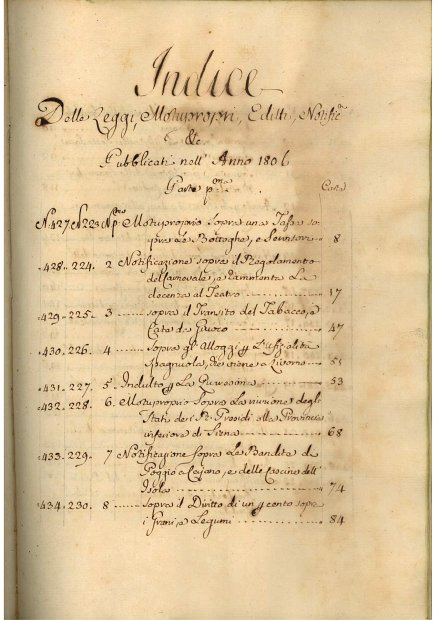 Indice
Delle Leggi, Motupropri, Editti, Notific.
&c.
Pubblicati nell' Anno 1806
Parte p.ma
Carta
N.427 N.223 N.Pmo Motuproprio sopra una Tassa so-
pra Le Botteghe, e 8
428.. 224. 2 Notificazione sopra il Regolamento
del Carnevale, e rammenta La
decenza al Teatro 17
429.. 225. 3 sopra il Transito del Tabacco, e
Carte da Giuoco 47
430. 226. 4 sopra gl' Alloggi p L'Uffizialità
Spagnuola, che viene a Livorno 51
431. 227. 5. Indulto p La Quaresima 53
432. 228. 6. Motuproprio sopra La riunione degli
Stati de i Rli Presidi alla Provincia
inferiore di Siena 68
433. 229. 7 Notificazione sopra La Bandita di
Poggio a Cajano, e delle Cascine dell'
Isola 74
434. 230. 8 sopra il Diritto di un p cento sopra
i Grani, e Legumi 84